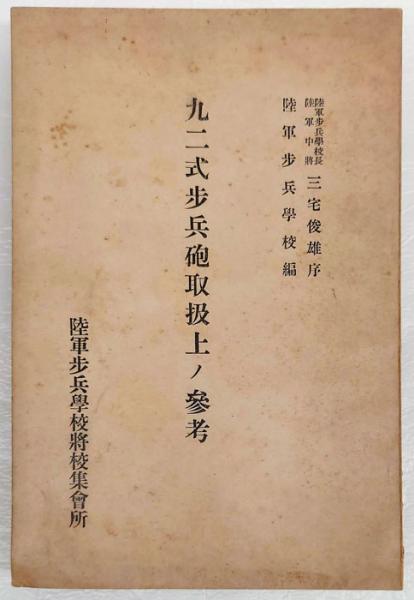 陸軍步兵學校長
陸軍中將
三宅俊雄序
陸軍步兵學校編
九二式步兵砲取扱上ノ參考
陸軍步兵學校將校集會所